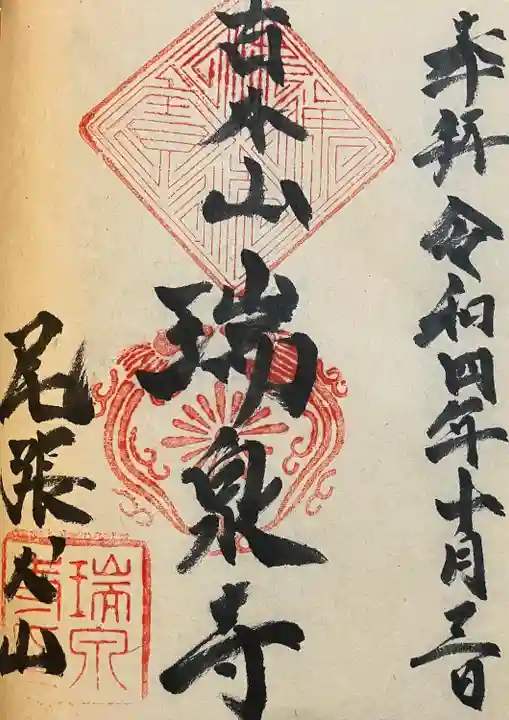 奉拝 令和四年十月三日
青木山
瑞泉寺
尾張犬山
瑞泉